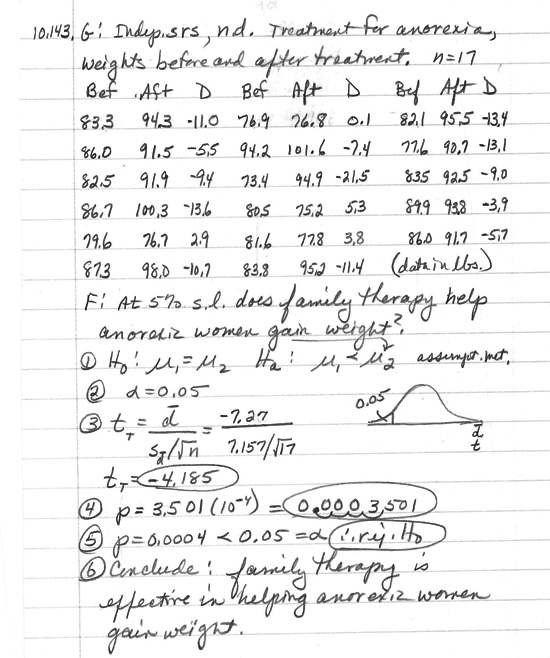 10.143. G: Indep. srs, nd. Treatment for anorexia,
weights before and after treatment. n=17
Bef Aft D Bef Aft D Bef Aft D
83.3 94.3 -11.0 76.9 76.8 0.1 82.1 95.5 -13.4
86.0 91.5 -5.5 94.2 101.6 -7.4 77.6 90.7 -13.1
82.5 91.9 -9.4 73.4 94.9 -21.5 83.5 92.5 -9.0
86.7 100.3 -13.6 80.5 75.2 5.3 89.9 93.8 -3.9
79.6 76.7 2.9 81.6 77.8 3.8 86.0 91.7 -5.7
87.3 98.0 -10.7 83.8 95.2 -11.4 (data in lbs.)
F: At 5% s.l. does family therapy help
anorexic women gain weight?
① H₀: μ₁ = μ₂ Hₐ: μ₁ < μ₂ assumpt. met.
② α = 0.05
0.05
③ t_T = d̄ / (s_d/√n) = -7.27 / (7.157/√17)
d̄
t
t_T = -4.185
④ p = 3.501(10⁻⁴) = 0.0003501
⑤ p = 0.0004 < 0.05 = α ∴ rej. H₀
⑥ Conclude: family therapy is
effective in helping anorexic women
gain weight.